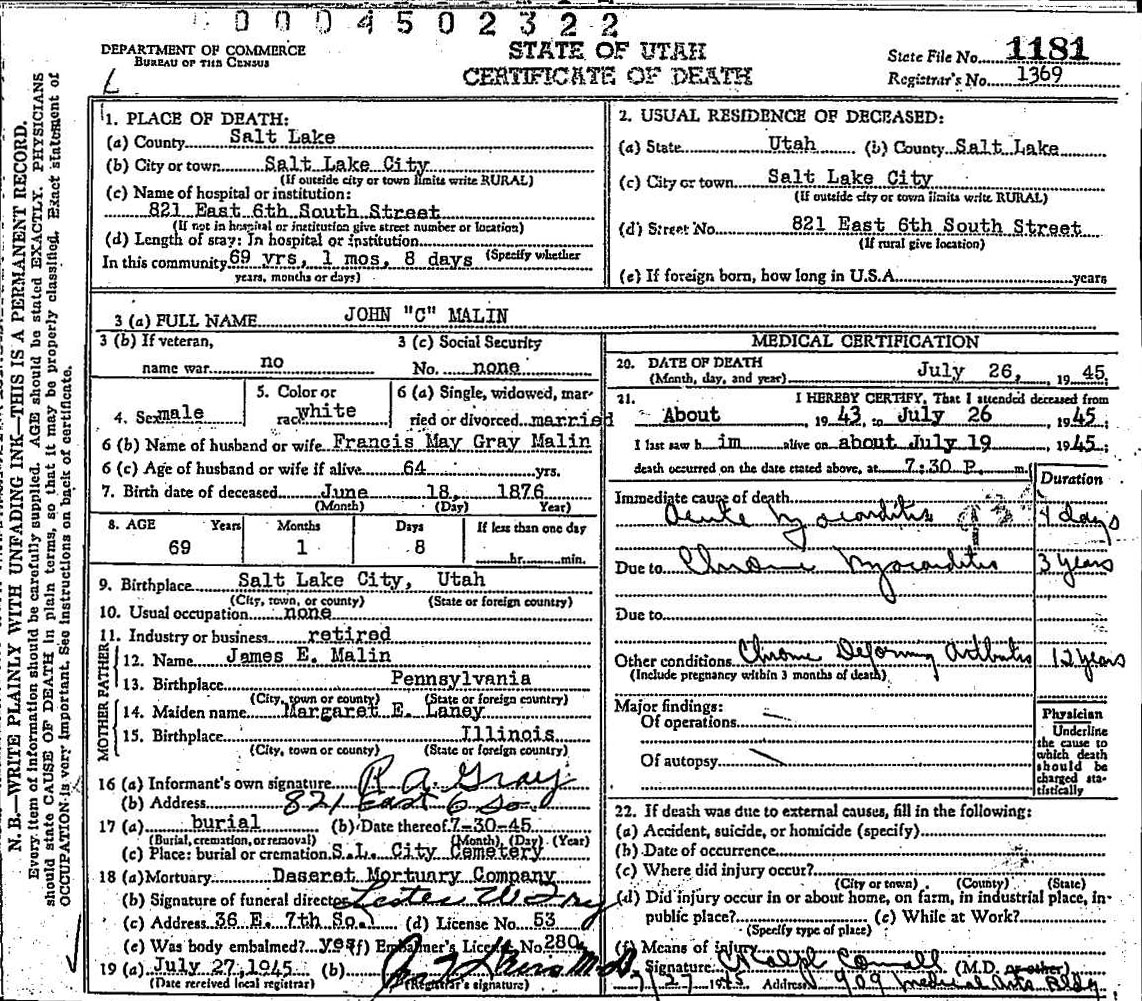 0004502322
DEPARTMENT OF COMMERCE
BUREAU OF THE CENSUS
STATE OF UTAH
CERTIFICATE OF DEATH
State File No. 1181
Registrar's No. 1369
N. B.—WRITE PLAINLY WITH UNFADING INK—THIS IS A PERMANENT RECORD.
Every item of information should be carefully supplied. AGE should be stated EXACTLY. PHYSICIANS
should state CAUSE OF DEATH in plain terms, so that it may be properly classified. Exact statement of
OCCUPATION is very important. See instructions on back of certificate.
1. PLACE OF DEATH:
(a) County Salt Lake
(b) City or town Salt Lake City
(If outside city or town limits write RURAL)
(c) Name of hospital or institution:
821 East 6th South Street
(If not in hospital or institution give street number or location)
(d) Length of stay: In hospital or institution
In this community 69 yrs, 1 mos, 8 days (Specify whether
years, months or days)
2. USUAL RESIDENCE OF DECEASED:
(a) State Utah (b) County Salt Lake
(c) City or town Salt Lake City
(If outside city or town limits write RURAL)
(d) Street No. 821 East 6th South Street
(If rural give location)
(e) If foreign born, how long in U.S.A. years
3 (a) FULL NAME JOHN "C" MALIN
3 (b) If veteran, 3 (c) Social Security
name war no No. none
4. Sex male
5. Color or
race white
6 (a) Single, widowed, mar-
ried or divorced married
6 (b) Name of husband or wife Francis May Gray Malin
6 (c) Age of husband or wife if alive 64 yrs.
7. Birth date of deceased June 18, 1876
(Month) (Day) Year)
8. AGE Years Months Days If less than one day
69 1 8 hr. min.
9. Birthplace Salt Lake City, Utah
(City, town, or county) (State or foreign country)
10. Usual occupation none
11. Industry or business retired
FATHER
12. Name James E. Malin
13. Birthplace Pennsylvania
(City, town or county) (State or foreign country)
MOTHER
14. Maiden name Margaret E. Laney
15. Birthplace Illinois
(City, town or county) (State or foreign country)
16 (a) Informant's own signature R A. Gray
(b) Address 821 East 6 So
17 (a) burial (b) Date thereof 7-30-45
(Burial, cremation, or removal) (Month), (Day) (Year)
(c) Place: burial or cremation S.L. City Cemetery
18 (a) Mortuary Deseret Mortuary Company
(b) Signature of funeral director
(c) Address 36 E. 7th So. (d) License No. 53
(e) Was body embalmed? yes (f) Embalmer's License No. 280
19 (a) July 27, 1945 (b)
(Date received local registrar) (Registrar's signature)
MEDICAL CERTIFICATION
20. DATE OF DEATH
(Month, day, and year) July 26, 1945
21. I HEREBY CERTIFY, That I attended deceased from
About 1943, to July 26 1945;
I last saw h im alive on about July 19 1945;
death occurred on the date stated above, at 7:30 P. m.
Duration
Immediate cause of death
Acute Myocarditis 4 days
Due to Chronic Myocarditis 3 years
Due to
Other conditions Chronic Deforming Arthritis 12 years
(Include pregnancy within 3 months of death)
Major findings:
Of operations
Of autopsy
Physician
Underline
the cause to
which death
should be
charged sta-
tistically
22. If death was due to external causes, fill in the following:
(a) Accident, suicide, or homicide (specify)
(b) Date of occurrence
(c) Where did injury occur?
(City or town) (County) (State)
(d) Did injury occur in or about home, on farm, in industrial place, in-
public place? (e) While at Work?
(Specify type of place)
(f) Means of injury
Signature Ralph (M.D. or other)
7/27 1945 Address 909 Medical Arts Bldg